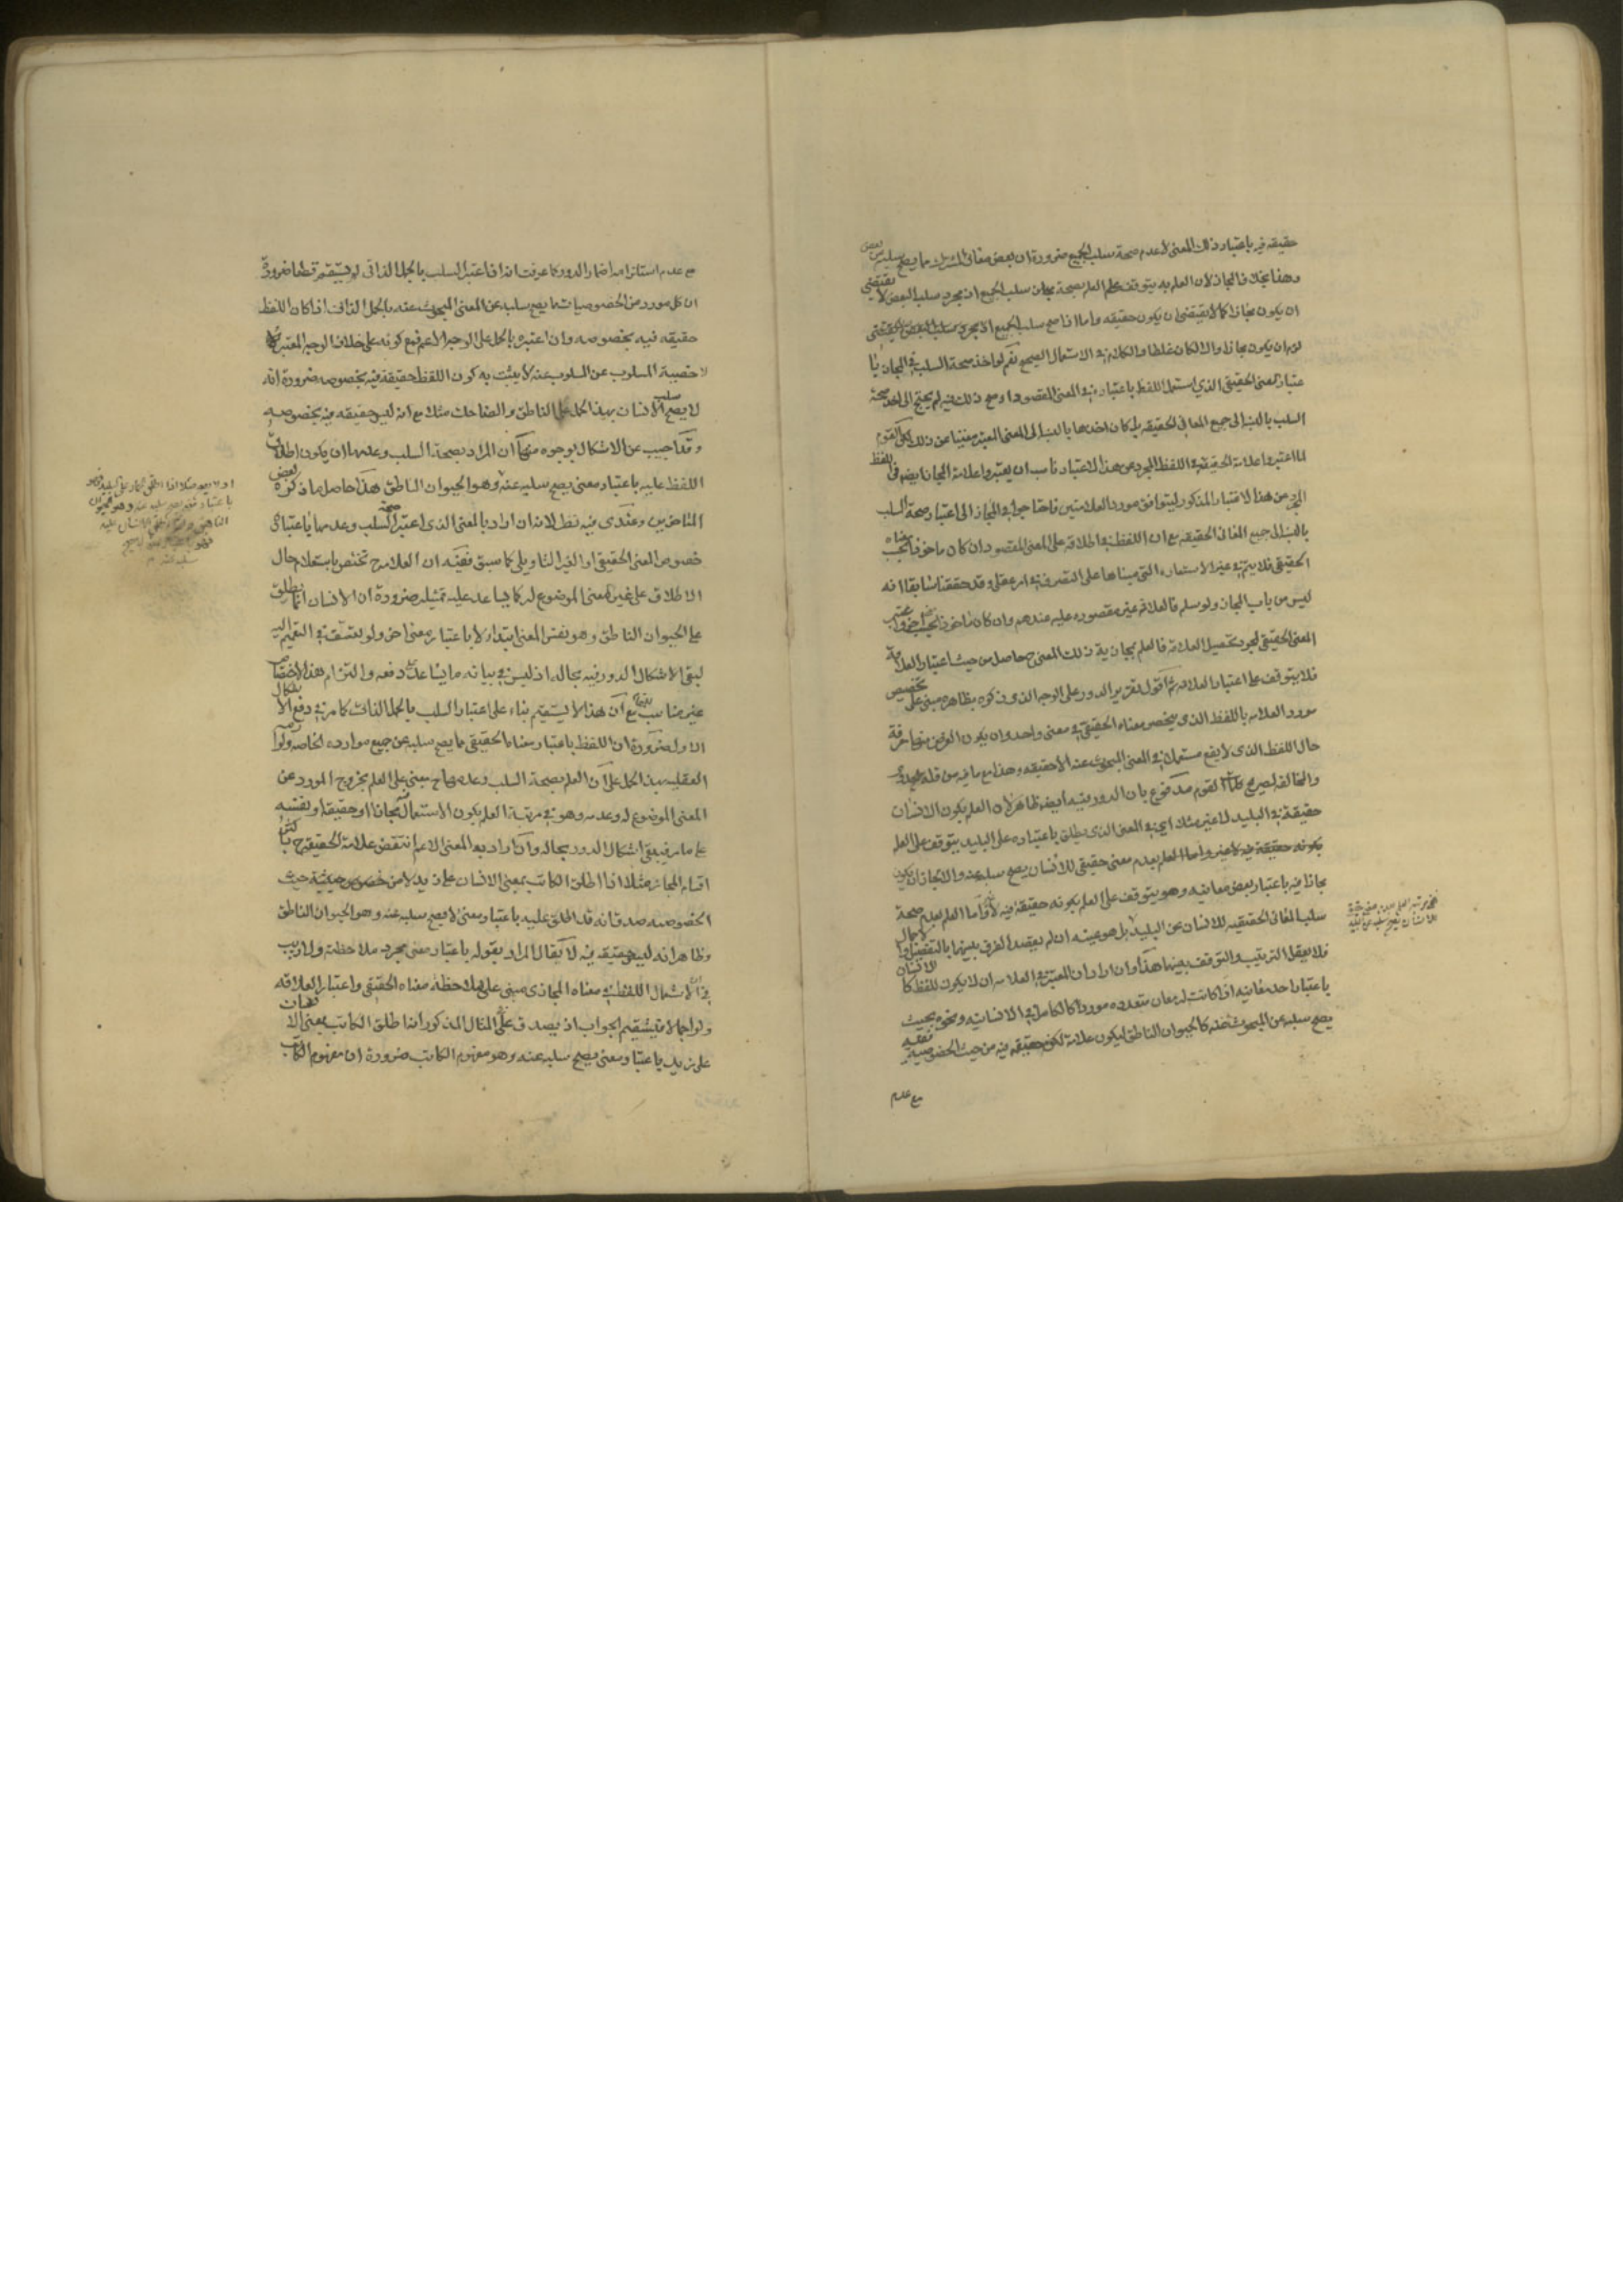 حقيقة فيه باعتبار ذلك المعنى لا عدم صحة سلب الجميع ضرورة ان بعض معانى المشترك مما يصح سلبه عن بعض
وهذا بخلاف المجاز لان العلم به يتوقف على العلم بصحة سلب الجميع اذ مجرد سلب البعض لا يقتضى
ان يكون مجازا كما لا يقتضى ان يكون حقيقة واما اذا صح سلب الجميع
ان يكون مجازا والا لكان غلطا والكلام فى الاستعمال الصحيح نعم لو اخذ صحة السلب فى المجاز با
عتبار المعنى الحقيقى الذى استعمل اللفظ باعتباره فى المعنى المقصود او مع ذلك فيه لم يحتج الى اخذ صحة
السلب بالنسبة الى جميع المعانى الحقيقة بل كان اخذها بالنسبة الى المعنى المعتبر مغنيا عن ذلك لكن القوم
لما اعتبروا علامة الحقيقة فى اللفظ المجرد عن هذا الاعتبار ناسب ان يعتبروا علامة المجاز ايضا فى اللفظ
المجرد عن هذا الاعتبار المذكور ليتوافق مورد العلامتين فاحتاجوا فى المجاز الى اعتبار صحة السلب
بالنسبة الى جميع المعانى الحقيقة مع ان اللفظ فى اطلاقه على المعنى المقصود ان كان ماخوذا بحسب معناه
الحقيقى فلا يتم فى غير الاستعارة التى مبناها على التصرف فى امر عقلى وقد حققنا سابقا انه
ليس من باب المجاز ولو سلم فالعلاقة غير مقصورة عليه عندهم وان كان ماخوذا بحسب
المعنى الحقيقى لمجرد تحصيل العلاقة فالعلم بمجازية ذلك المعنى ح حاصل من حيث اعتبار العلاقة
فلا يتوقف على اعتبار العلامة ثم اقول تقرير الدور على الوجه الذى ذكروه بظاهره مبنى على تخصيص
مورد العلامة باللفظ الذى ينحصر معناه الحقيقى فى معنى واحد وان يكون الغرض منها معرفة
حال اللفظ الذى لا يقع مستعملا فى المعنى المبحوث عنه الا حقيقة وهذا مع ما فيه من قلة الجدوى
والمخالفة لصريح كلام القوم مدفوع بان الدور بتقديره ايضا ظاهر لان العلم بكون الانسان
حقيقة فى البليد لا غير مثلا اى فى المعنى الذى يطلق باعتباره على البليد يتوقف على العلم
بكونه حقيقة فيه لا غير واما العلم بعدم معنى حقيقى للانسان يصح سلبه عنه والا لجاز ان يكون
مجازا فيه باعتبار بعض معانيه وهو يتوقف على العلم بكونه حقيقة فيه لا غير واما العلم بعدم صحة
سلب المعانى الحقيقية للانسان عن البليد بل هو عينه ان لم يقصد الفرق بينهما بالتفصيل والاجمال
فلا يعقل الترتيب والتوقف بينهما هكذا وان اراد ان المعتبر فى العلامة ان لا يكون للفظ كالانسان
باعتبار احد معانيه اذا كانت له معان متعددة موردا كالكامل فى الانسانية ونحوه بحيث
يصح سلبه عن المبحوث عنه كالحيوان الناطق ليكون علامة لكونه حقيقة فيه من حيث الخصوصية
مع عدم
مع عدم استلزامه اضمار الدور كما عرفت اذ اذا اعتبر السلب بالحمل الذاتى لم يستقم قطعا ضرورة
ان كل مورد من الخصوصيات مما يصح سلبه عن المعنى المبحوث عنه بالحمل الذاتى اذا كان اللفظ
حقيقة فيه بخصوصه وان اعتبره بالحمل على الوجه الاعم فمع كونه على خلاف الوجه المعتبر
لاخصية المسلوب عن المسلوب عنه لا يثبت به كون اللفظ حقيقة فيه بخصوصه ضرورة انه
لا يصح سلب الانسان بهذا الحمل على الناطق والضاحك مثلا مع انه ليس حقيقة فيه بخصوصه
وقد اجيب عن الاشكال بوجوه منها ان المراد بصحة السلب وعدمها ان يكون اطلاق
اللفظ عليه باعتبار معنى يصح سلبه عنه وهو الحيوان الناطق هكذا حاصل ما ذكره بعض
المتاخرين وعندى فيه نظر لانه ان اراد بالمعنى الذى اعتبر صحة السلب وعدمها باعتباره
خصوص المعنى الحقيقى او الغير التاويلى كما سبق ففيه ان العلامة ح تختص باستعلام حال
الاطلاق على غير المعنى الموضوع له كما يساعد عليه تمثيله ضرورة ان الانسان انما يطلق
على الحيوان الناطق وهو نفس المعنى ابتداء لا باعتبار معنى اخر ولو تعسف فى التعميم اليه
لبقى الاشكال الدور فيه بحاله اذ ليس فى بيانه ما يساعد على دفعه والتزام هذا الاختصاص
غير مناسب مع ان هذا لا يستقيم بناء على اعتبار السلب بالحمل الذاتى كما مر فى دفع الاشكال
الاول ضرورة ان اللفظ باعتبار معناه الحقيقى مما يصح سلبه عن جميع موارده الخاصة ولو
العقلية بهذا الحمل على ان العلم بصحة السلب وعدمها ح مبنى على العلم بخروج المورد عن
المعنى الموضوع له وعدمه وهو فى مرتبة العلم بكون الاستعمال مجازا او حقيقة او نفسه
على ما مر فيبقى اشكال الدور بحاله وان اراد به المعنى الاعم انتقض علامة الحقيقة ح باكثر
اقسام المجاز مثلا اذا اطلق الكاتب بمعنى الانسان على زيد لا من حيث
الخصوصية صدق انه قد اطلق عليه باعتبار معنى لا يصح سلبه عنه وهو الحيوان الناطق
وظاهر انه ليس حقيقة فيه لا يقال المراد بقوله باعتبار معنى مجرد ملاحظة ولا ريب
فى ان استعمال اللفظ فى معناه المجازى مبنى على ملاحظة معناه الحقيقى واعتبار العلاقة
ولو اجمالا فيستقيم الجواب اذ يصدق على المثال المذكور اذا طلق الكاتب بمعنى الانسان
على زيد باعتبار معنى يصح سلبه عنه وهو مفهوم الكاتب ضرورة ان مفهوم الكاتب